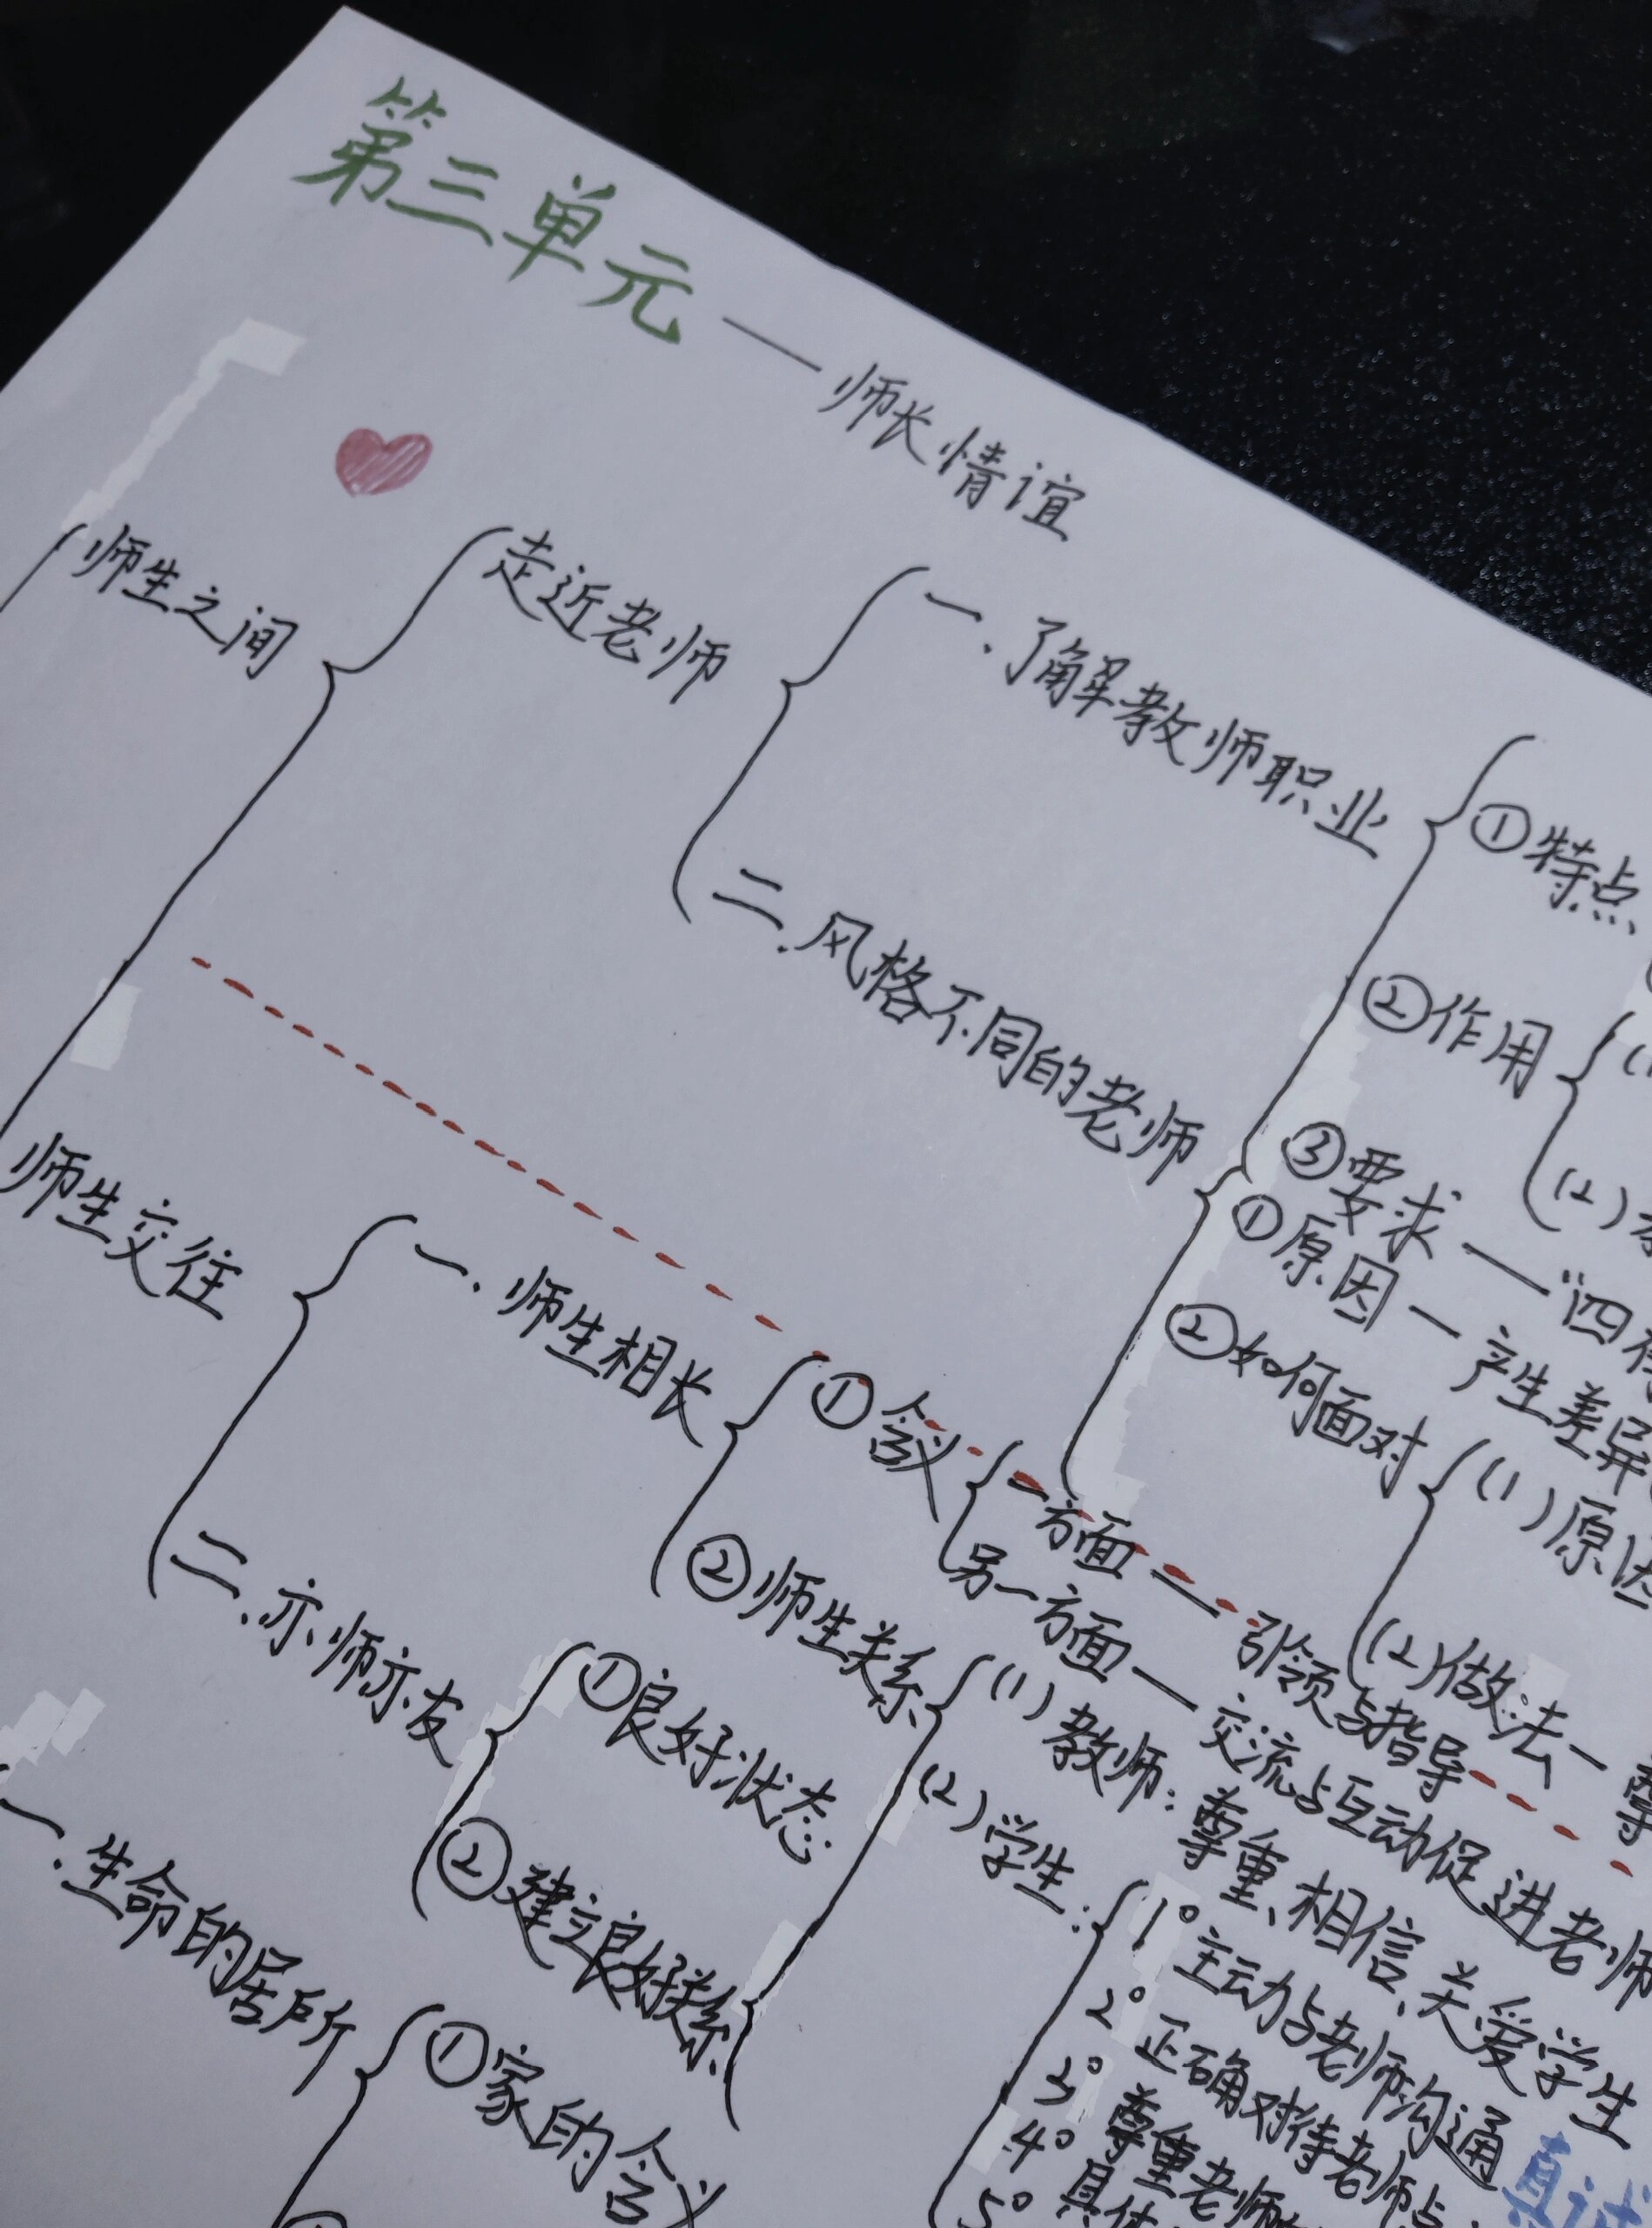 第三单元——师长情谊
师生之间
走近老师
一.了解教师职业
①特点
②作用
(2)
③要求——“四有
二.风格不同的老师
①原因—产生差异
②如何面对
(1)原因
(2)做法—
师生交往
一.师生相长
①含义
一方面—引领与指导
另一方面—交流与互动促进老师
②师生关系
(1)教师:尊重、相信、关爱学生
(2)学生:
1° 主动与老师沟通
2° 正确对待老师
3° 尊重老师
4° 具体
5°
二.亦师亦友
①良好状态
②建立良好关系
一.生命的居所
①家的含义